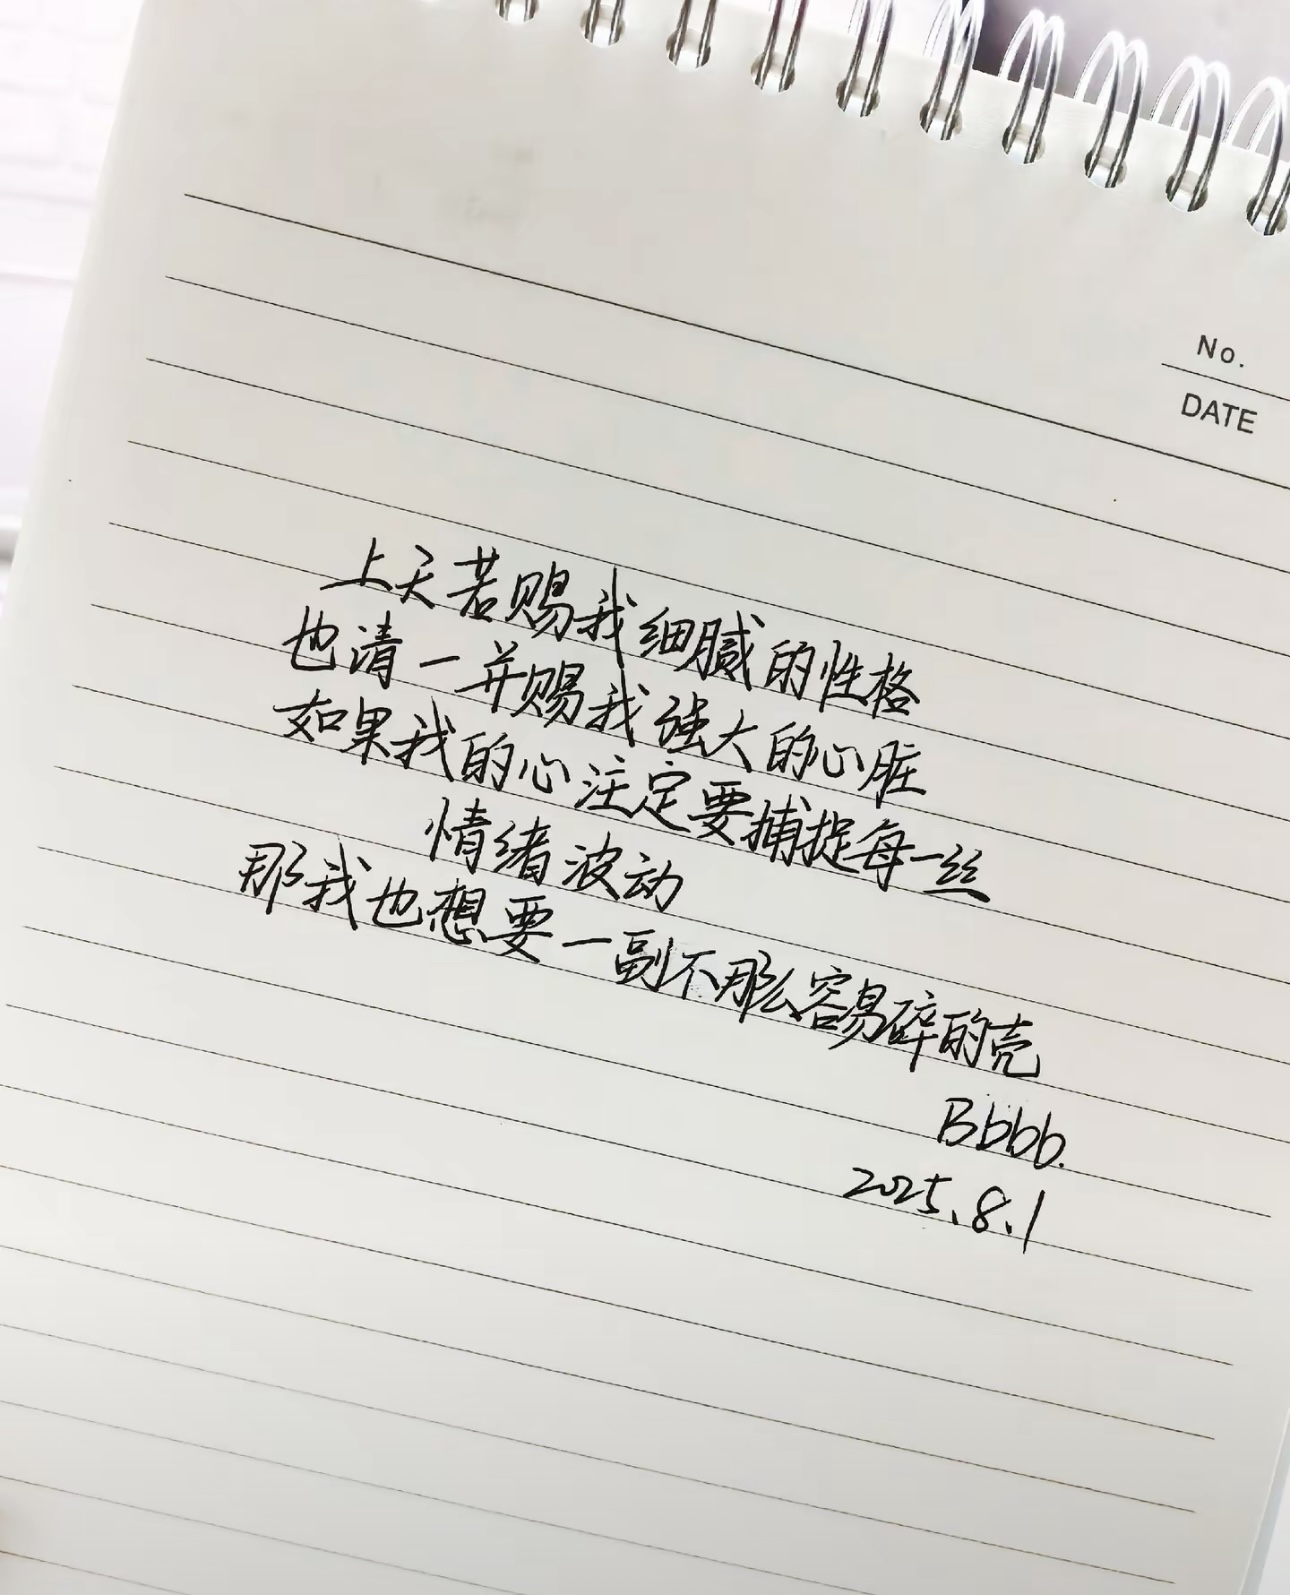 No.
DATE
上天若赐我细腻的性格
也清一并赐我强大的心脏
如果我的心注定要捕捉每一丝
情绪波动
那我也想要一副不那么容易碎的壳
Bbbb.
2025.8.1